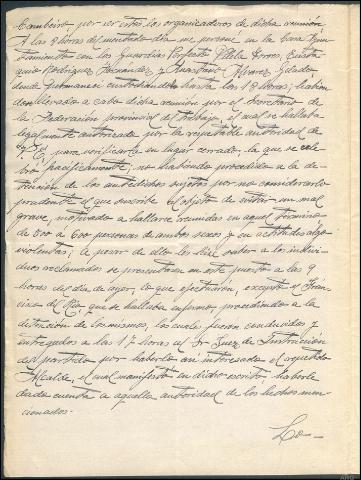 Cambeiro por ser estos los organizadores de dicha reunión
A las 9 horas del mentado día me persone en la Casa Ayun-
tamiento con los Guardias Perfecto Vilela Torres, Eusta
quio Rodriguez Fernandez y Anastasio Alvarez
donde permanecí custodiandola hasta las 18 horas; habien
dose llevado a cabo dicha reunión por el Secretario de
la Federación provincial del trabajo, el cual se hallaba
legalmente autorizado por la respetable autoridad de
V.E. para verificarla en lugar cerrado la que se cele
bró pacificamente; no habiendo procedido a la de-
tención de los antedichos sujetos por no considerarlo
prudente el que suscribe al objeto de evitar un mal
grave, motivado a hallarse reunidas en aquel término
de 500 a 600 personas de ambos sexos y en actitudes algo
violentas; a pesar de ello les hice saber a los indivi-
duos reclamados se presentaran en este puesto a las 9
horas del día de ayer, lo que efectuaron, excepto el Fran
cisco del Rio, que se hallaba enfermo procediendo a la
detención de los mismos, los cuales fueron conducidos y
entregados a las 17 horas al Sr Juez de Instrucción
del partido por haberlo así interesado el repetido
Alcalde, el cual manifestó en dicho escrito haberle
dado cuenta a aquella autoridad de los hechos men-
cionados.
Lo-